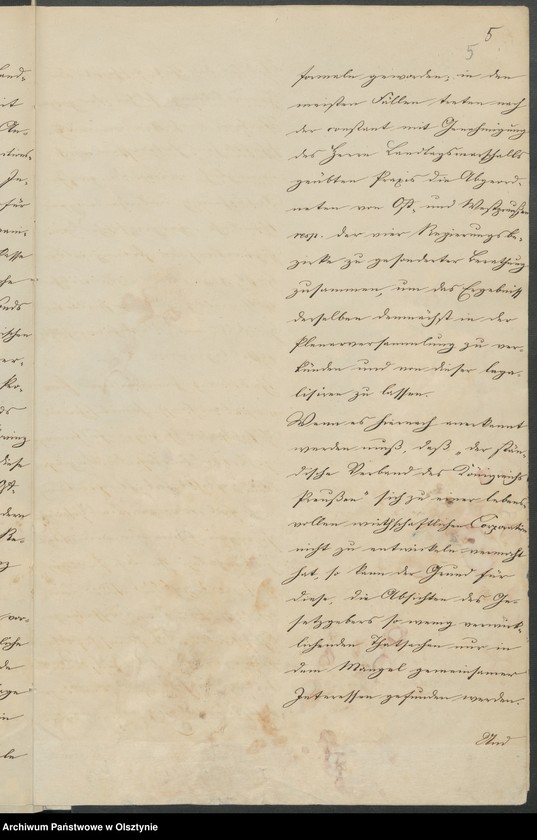 5.
5
formeln geworden; in den
meisten Fällen treten nach
der constant mit Genehmigung
des Herrn Landtagsmarschalls
geübten Praxis die Abgeord-
neten von Ost- und Westpreußen
resp. der vier Regierungsbe-
zirke zu gesonderter Berathung
zusammen, um das Ergebniß
derselben demnächst in der
Plenarversammlung zu ver-
künden und von dieser lega-
lisiren zu lassen.
Wenn es hiernach anerkannt
werden muß, daß "der stän-
dische Verband des Königreichs
Preußen" sich zu einer lebens-
vollen wirthschaftlichen Corporation
nicht zu entwickeln vermocht
hat, so kann der Grund für
diese, die Absichten des Ge-
setzgebers so wenig verwirk-
lichenden Thatsachen nur in
dem Mangel gemeinsamer
Interessen gefunden werden.
Und
Archiwum Państwowe w Olsztynie